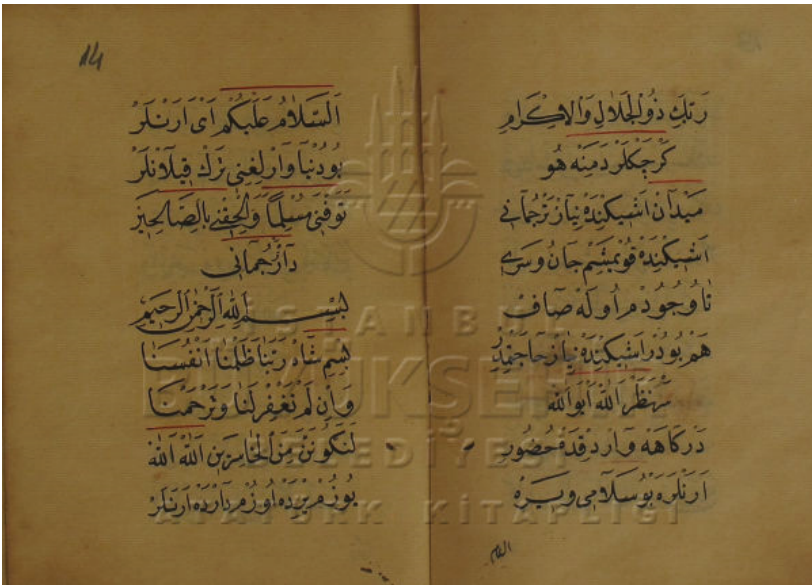 رَبِّكَ ذُو الْجَلَالِ وَالْاِكْرَامِ
كَرْچَكْلَرْ دَمِنَه هُو
مَيْدَانْ اَشِيكِنْدَه نِيَازْ تَرْجُمَانِي
اَشِيكِنْدَه قُويْمِشَمْ جَانُ وسَرِي
تَا وُجُودُمْ اُولَه صَافْ
هَمْ بُودُرْ اَشِيكِنْدَه نِيَازْ حَاجَتِمْدِرْ
اَللّٰه اَيْوَاللّٰه
دَرْكَاهَه وَارْدِقْدَه حُضُورِ
اَرَنْلَرَه بُو سَلَامِى وِيرَه
السلام
14
اَلسَّلَامُ عَلَيْكُمْ اَىْ اَرَنْلَرْ
بُو دُنْيَا وَارْلِغِنِى تَرْكْ قِيلَانْلَرْ
تَوَفَّنِى مُسْلِمًا وَاَلْحِقْنِى بِالصَّالِحِينَ
دَارْ تَرْجُمَانِى
بِسْمِ اللّٰهِ الرَّحْمٰنِ الرَّحِيمِ
بِسْمِ شَاهْ رَبَّنَا ظَلَمْنَا اَنْفُسَنَا
وَاِنْ لَمْ تَغْفِرْ لَنَا وَتَرْحَمْنَا
لَنَكُونَنَّ مِنَ الْخَاسِرِينَ اَللّٰه اَللّٰه
يُوزُمْ يَرْدَه اُوزُمْ دَارْدَه اَرَنْلَرْ
İSTANBUL
BÜYÜKŞEHİR
BELEDİYESİ
ATATÜRK KİTAPLIĞI